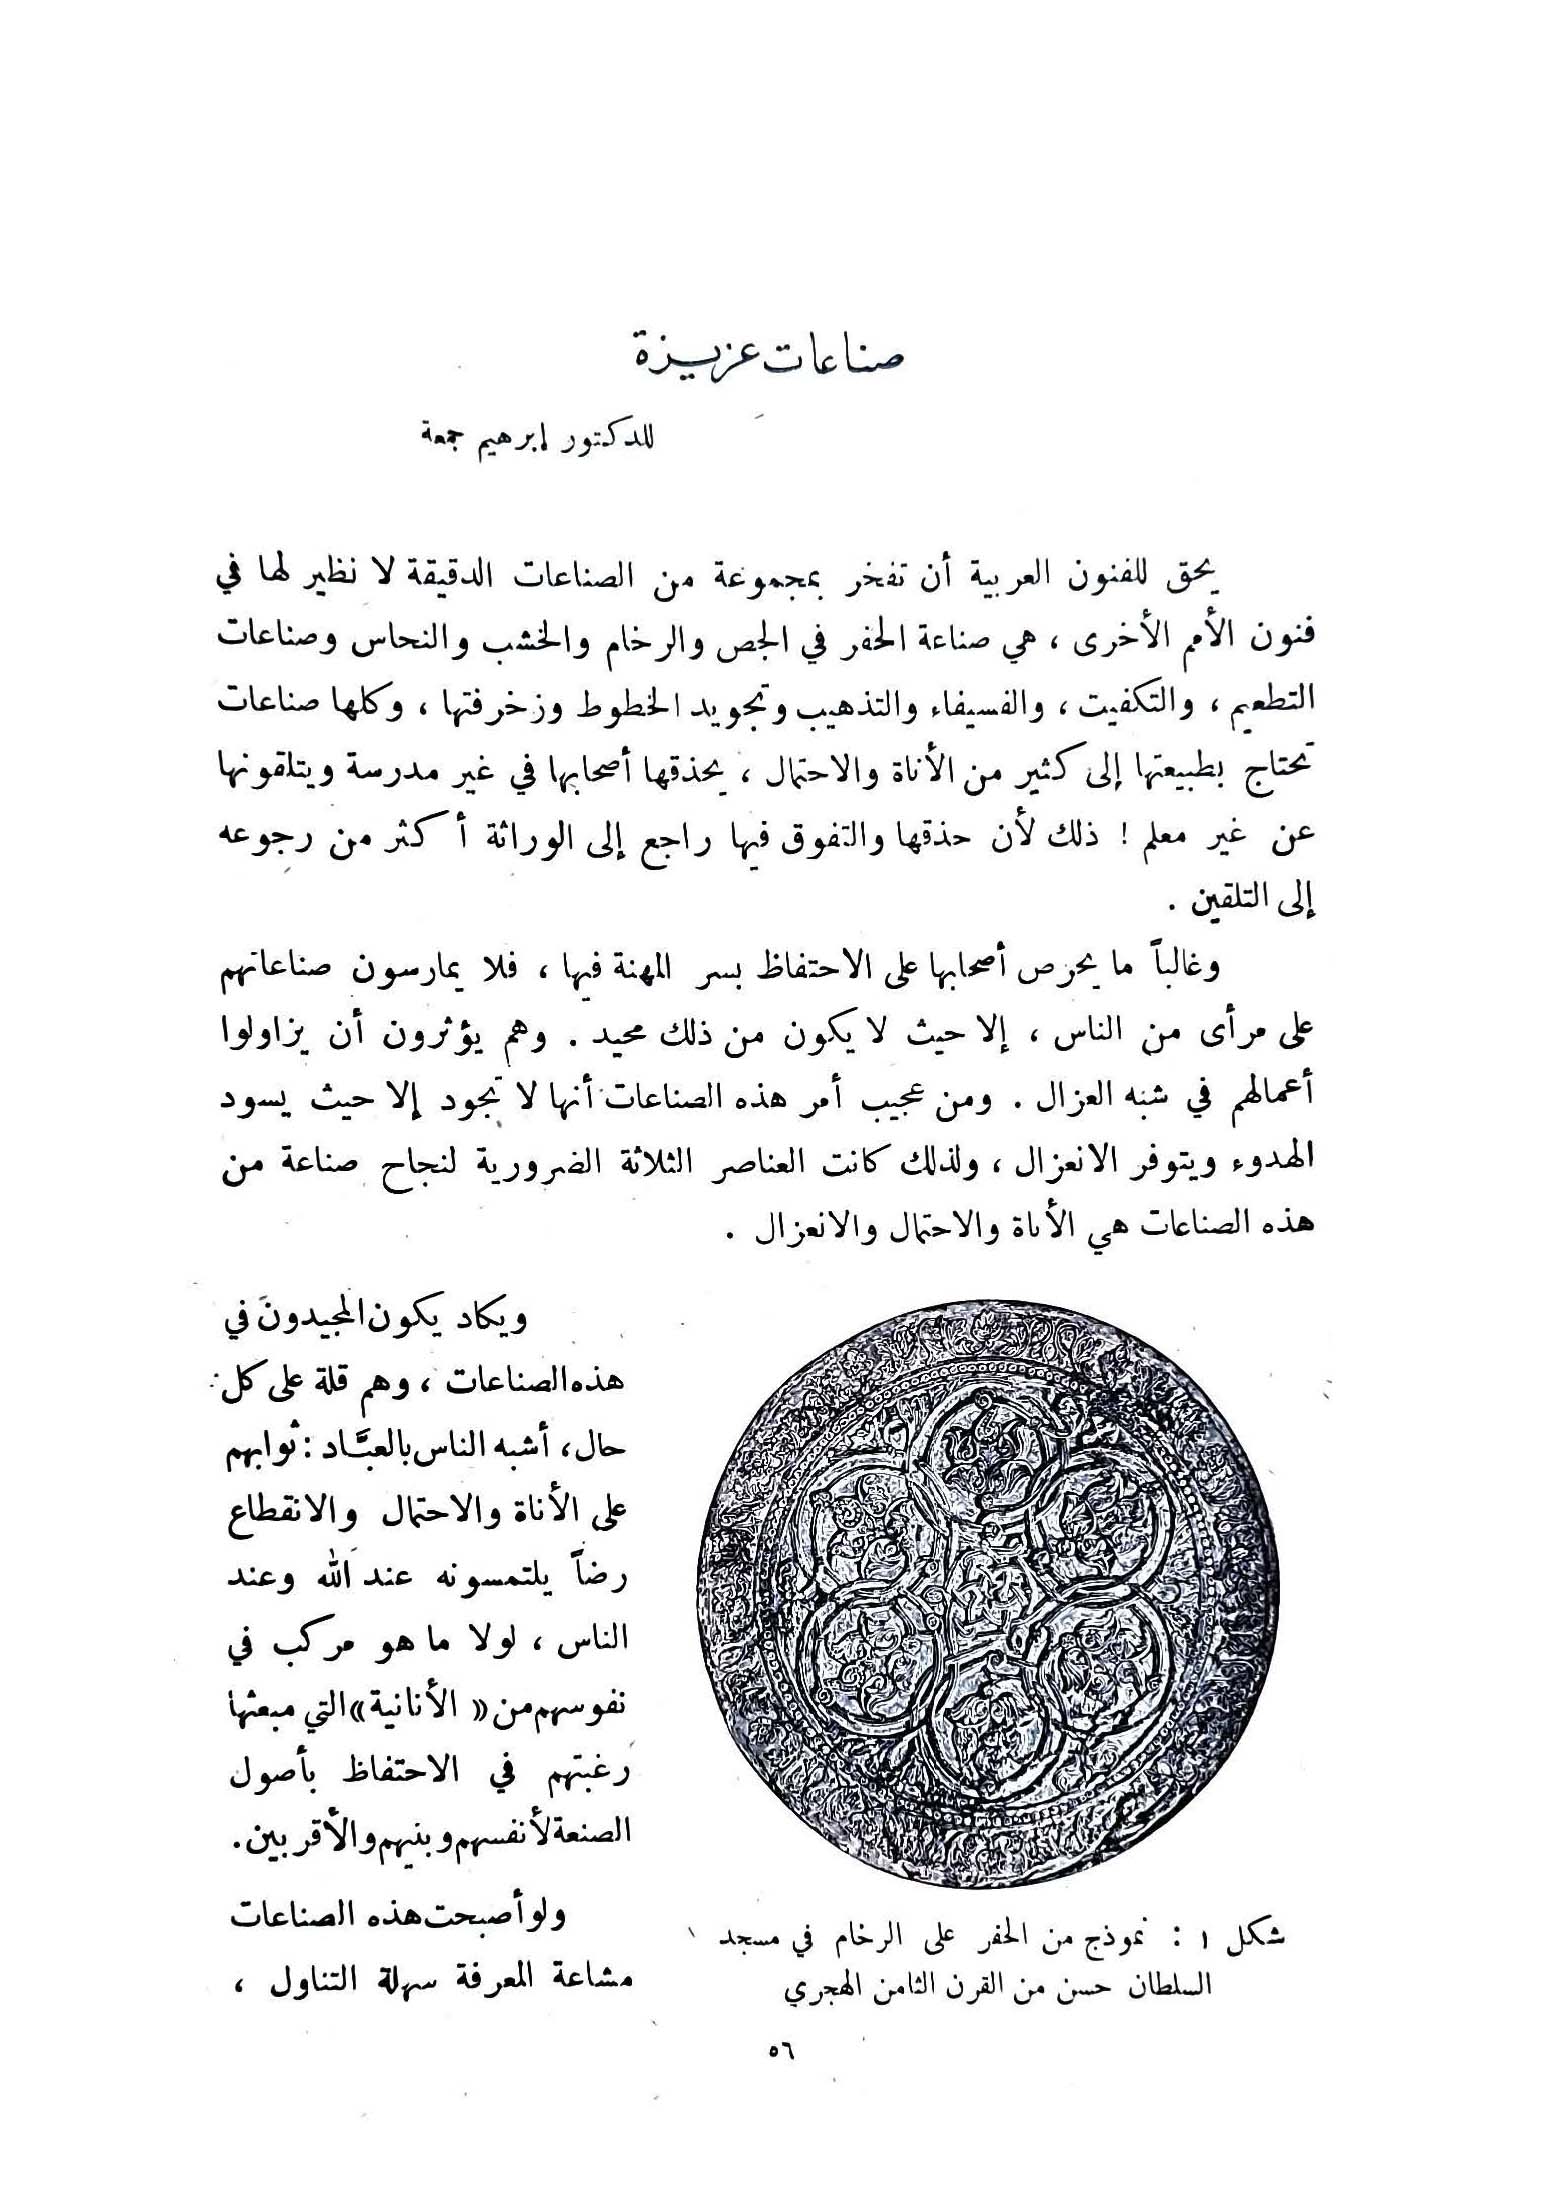 صناعات عزيزة
للدكتور إبرهيم جمعة
يحق للفنون العربية أن تفخر بمجموعة من الصناعات الدقيقة لا نظير لها في
فنون الأمم الأخرى ، هي صناعة الحفر في الجص والرخام والخشب والنحاس وصناعات
التطعيم ، والتكفيت ، والفسيفاء والتذهيب وتجويد الخطوط وزخرفتها ، وكلها صناعات
تحتاج بطبيعتها إلى كثير من الأناة والاحتمال ، يحذقها أصحابها في غير مدرسة ويتلقونها
عن غير معلم ! ذلك لأن حذقها والتفوق فيها راجع إلى الوراثة أكثر من رجوعه
إلى التلقين .
وغالباً ما يحرص أصحابها على الاحتفاظ بسر المهنة فيها ، فلا يمارسون صناعاتهم
على مرأى من الناس ، إلا حيث لا يكون من ذلك محيد . وهم يؤثرون أن يزاولوا
أعمالهم في شبه العزال . ومن عجيب أمر هذه الصناعات أنها لا تجود إلا حيث يسود
الهدوء ويتوفر الانعزال ، ولذلك كانت العناصر الثلاثة الضرورية لنجاح صناعة من
هذه الصناعات هي الأناة والاحتمال والانعزال .
ويكاد يكون المجيدون في
هذه الصناعات ، وهم قلة على كل
حال ، أشبه الناس بالعبَّاد : ثوابهم
على الأناة والاحتمال والانقطاع
رضاً يلتمسونه عند الله وعند
الناس ، لولا ما هو مركب في
نفوسهم من « الأنانية » التي مبعثها
رغبتهم في الاحتفاظ بأصول
الصنعة لأنفسهم وبنيهم والأقربين .
ولو أصبحت هذه الصناعات
مشاعة المعرفة سهلة التناول ،
شكل ١ : نموذج من الحفر على الرخام في مسجد
السلطان حسن من القرن الثامن الهجري
٥٦